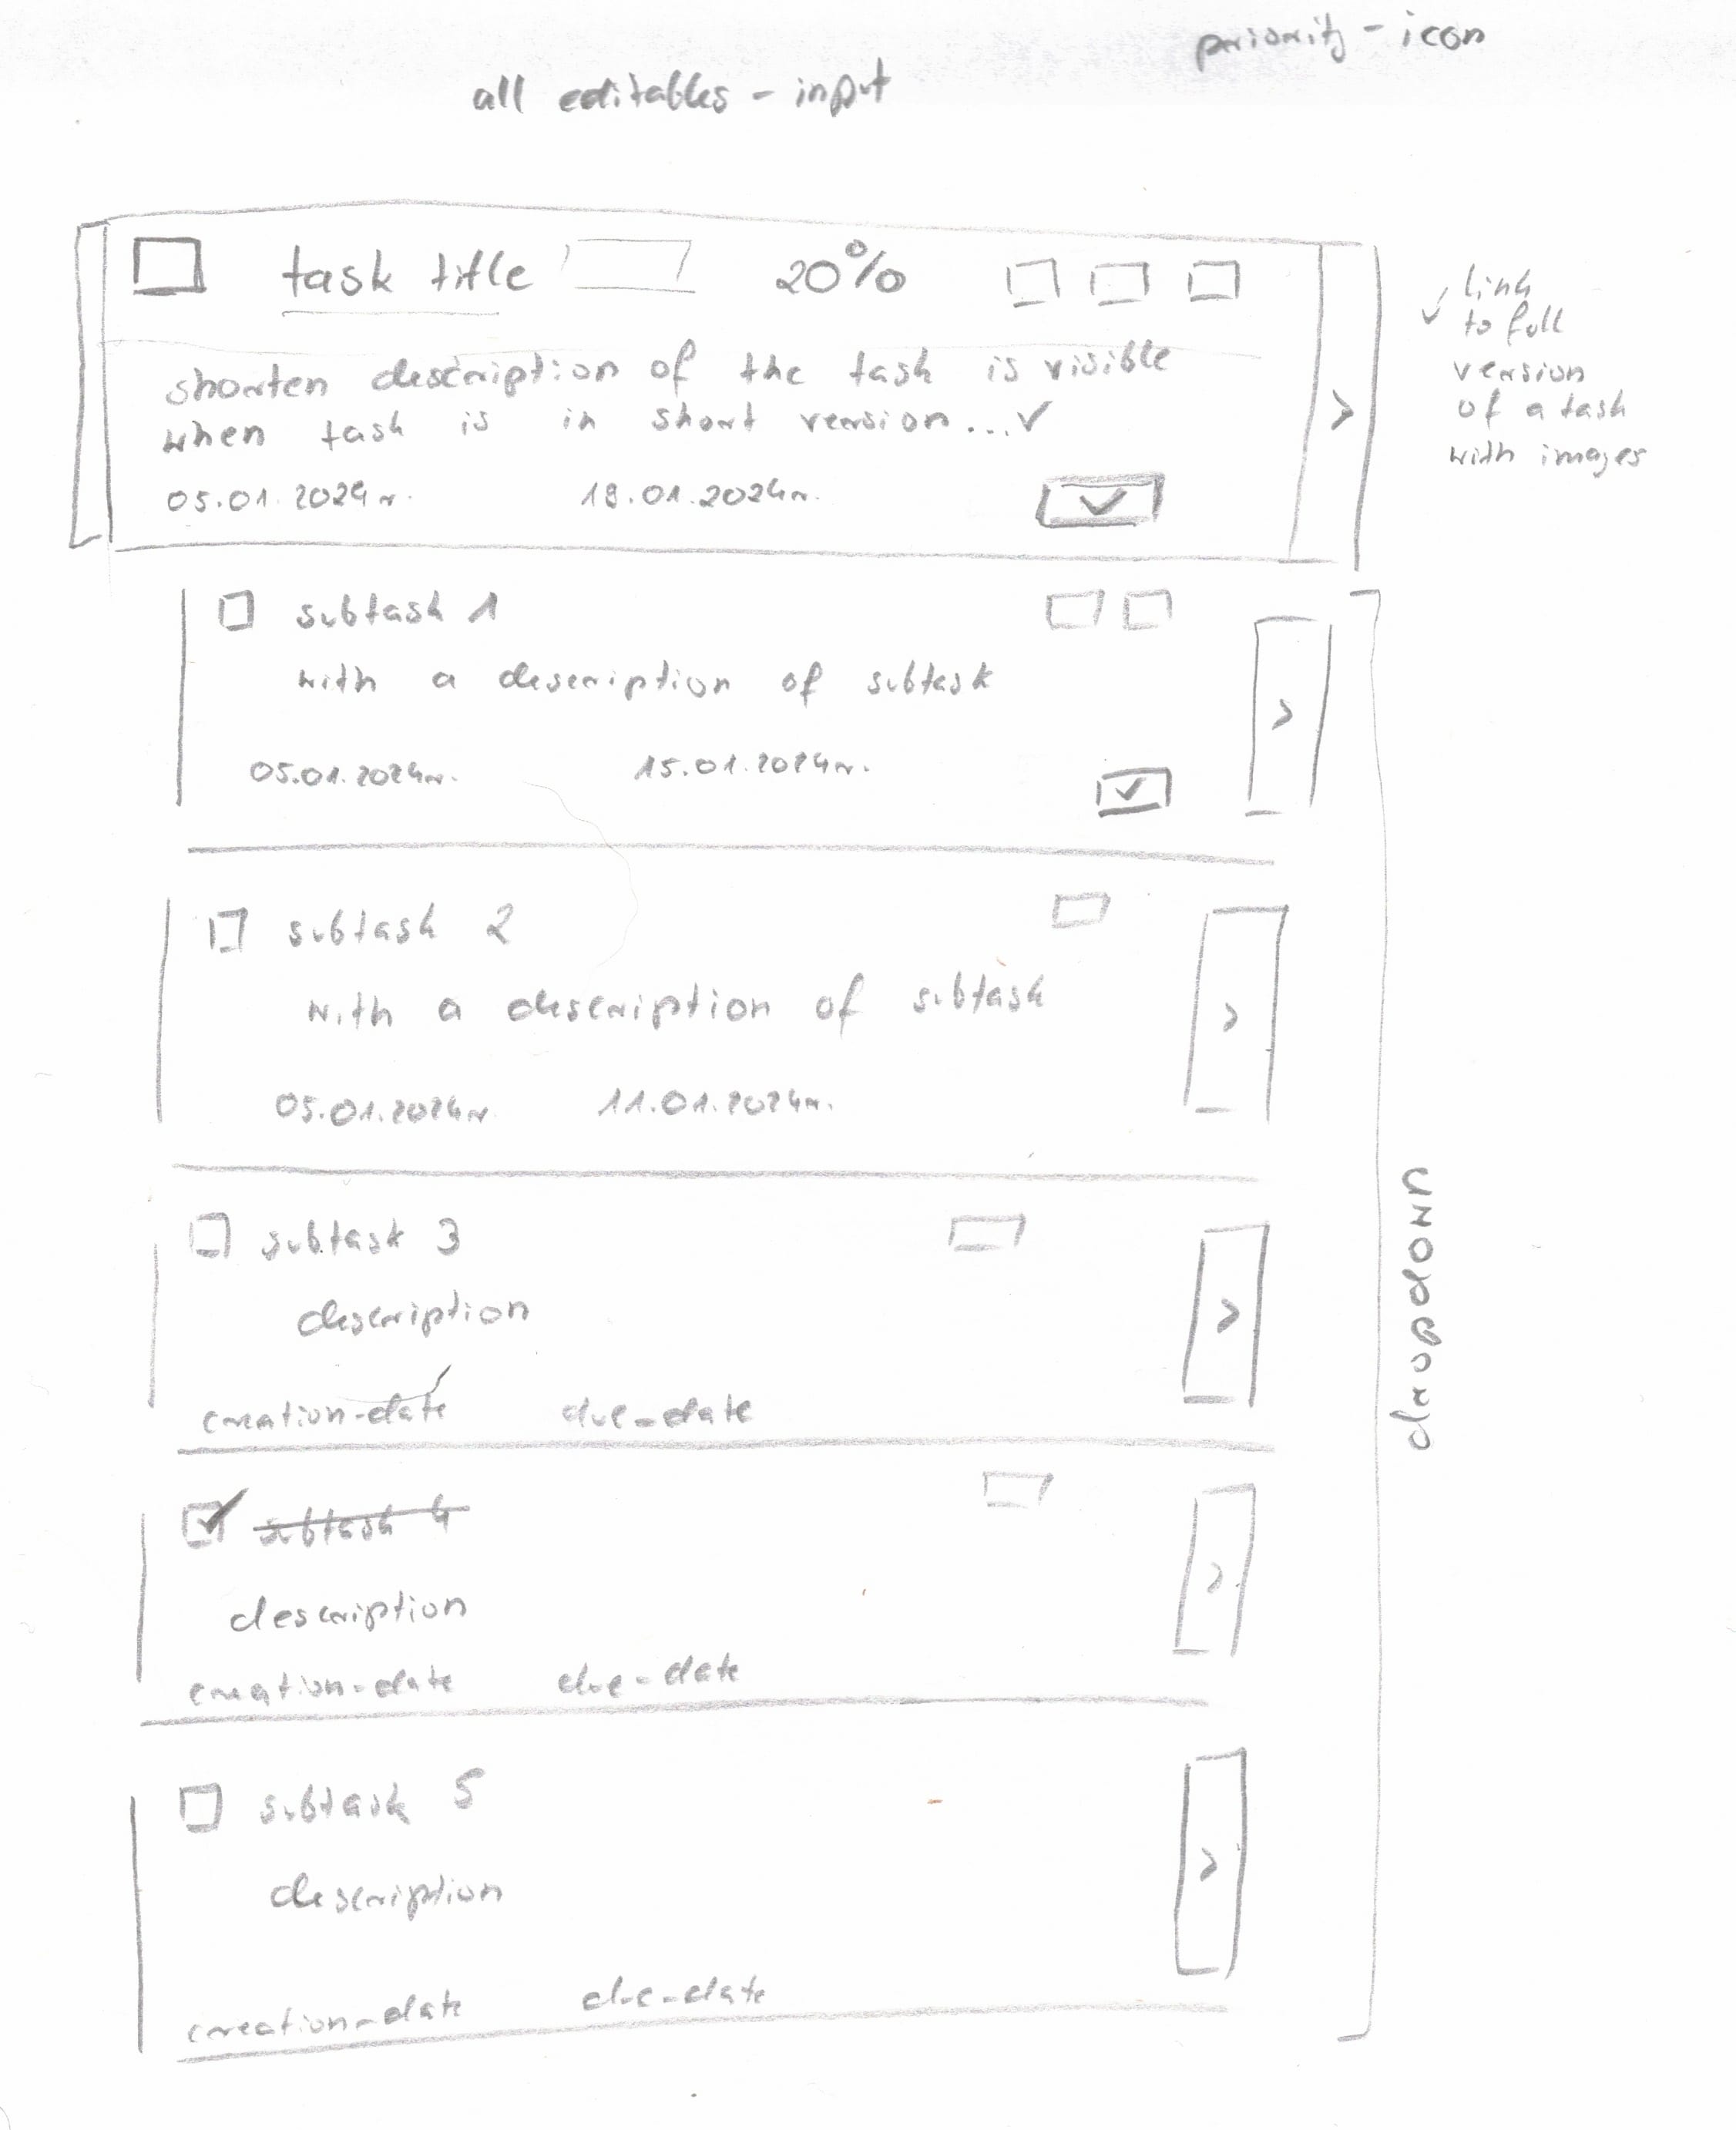 priority - icon
all editables - input
task title 20%
shorten description of the task is visible
when task is in short version...
05.01.2024r. 18.01.2024r.
link
to full
version
of a task
with images
>
subtask 1
with a description of subtask
05.01.2024r. 15.01.2024r.
>
subtask 2
with a description of subtask
05.01.2024r. 11.01.2024r.
>
subtask 3
description
creation-date due-date
>
subtask 4
description
creation-date due-date
>
subtask 5
description
creation-date due-date
>
dropdown